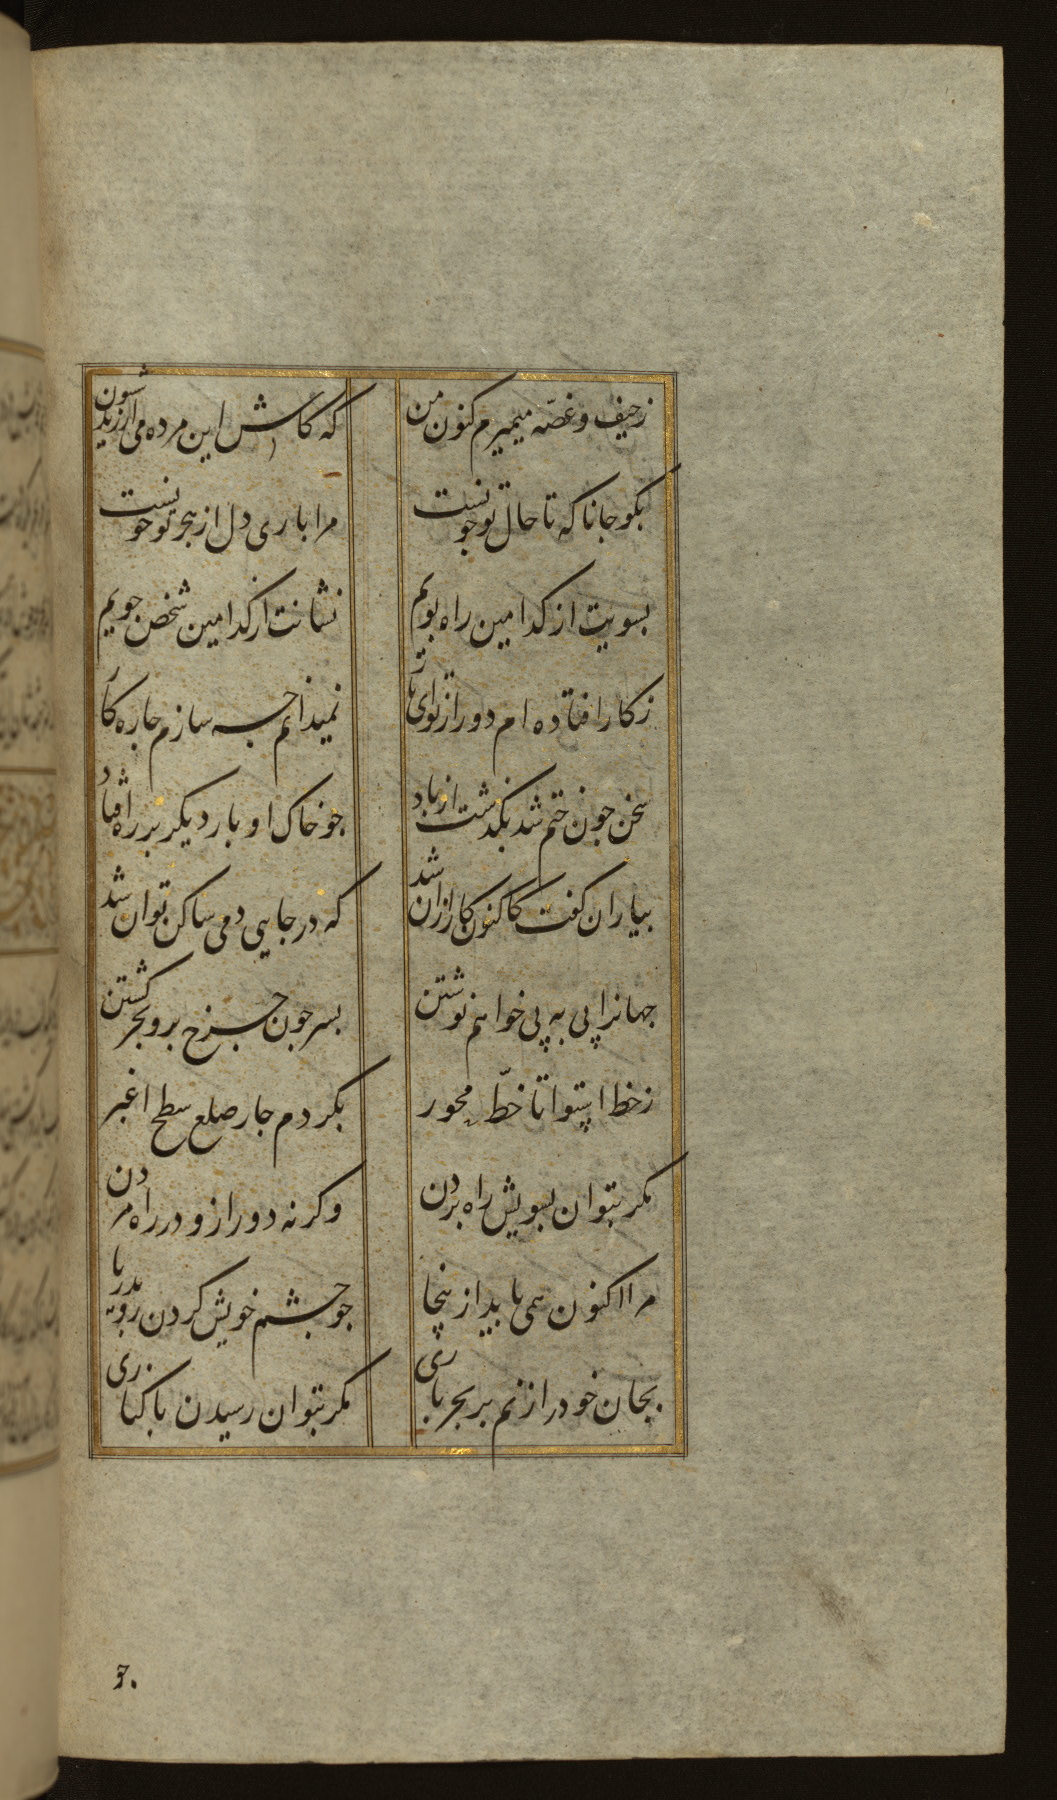 زحیف و غصّه میمیرم کنون من
که کاش این مرده می ارزید شیون
بکو جانا که تا حال تو جونست
مرا باری دل از هجر تو خونست
بسویت از کدامین راه بویم
نشانت از کدامین شخص جویم
ز کار افتاده ام دور از تو ای یار
نمیدانم جه سازم جاره کار
سخن جون ختم شد بکذشت ازو باد
جو خاک او بار دیکر بر ره افتاد
بیاران کفت کاکنون کار از آن شد
که در جایی دمی ساکن توان شد
جهانرا پی به پی خواهم نوشتن
بسر جون جرخ بر و بحر کشتن
ز خط استوا تا خطّ محور
بکردم جار صلع سطح اغبر
مکر بتوان بسویش راه بردن
وکرنه دور ازو در راه مردن
مرا اکنون همی باید ازینجا
جو جشم خویش کردن رو بدریا
بجان خود را زنم بر بحر باری
مکر بتوان رسیدن با کناری
جو